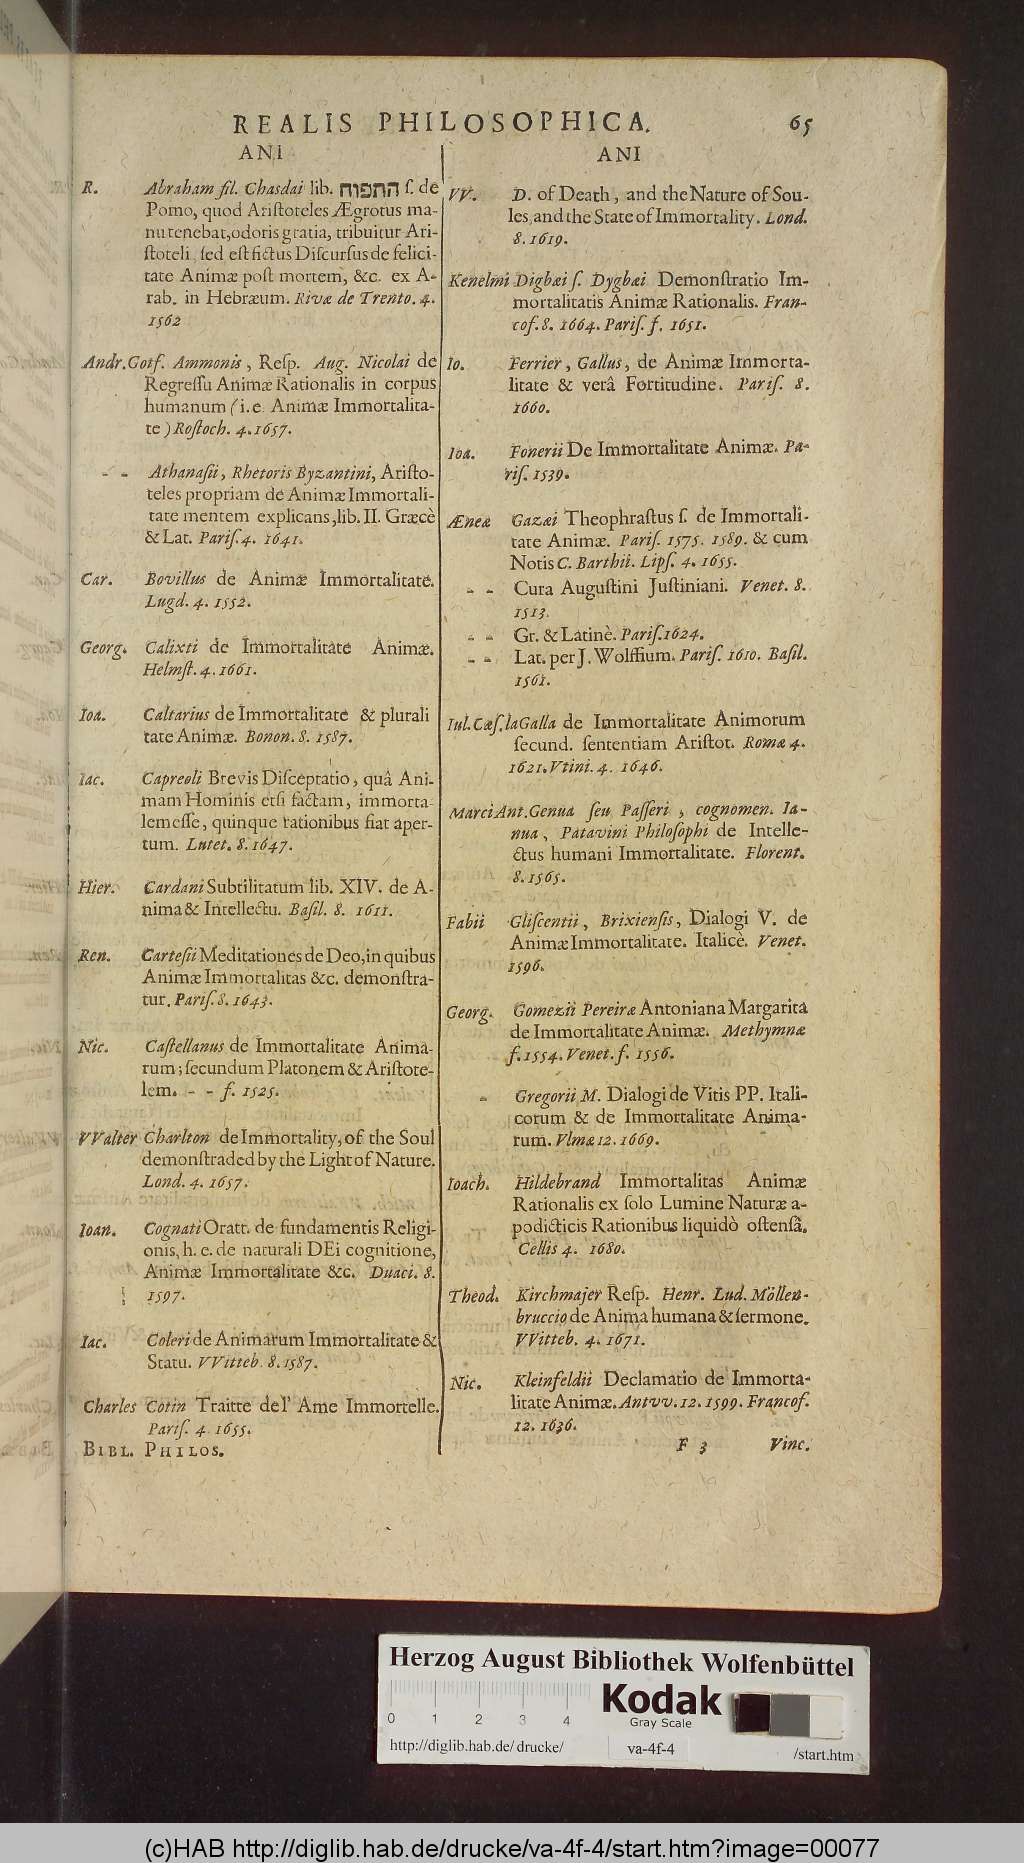 REALIS PHILOSOPHICA. 65
ANI
R. Abraham fil. Chasdai lib. התפוח ſ. de
Pomo, quod Ariſtoteles Ægrotus ma-
nu tenebat, odoris gratia, tribuitur Ari-
ſtoteli, ſed eſt fictus Diſcurſus de felici-
tate Animæ poſt mortem, &c. ex A-
rab. in Hebræum. Rivæ de Trento. 4.
1562
Andr. Gotf. Ammonis, Reſp. Aug. Nicolai de
Regreſſu Animæ Rationalis in corpus
humanum (i.e. Animæ Immortalita-
te) Roſtoch. 4. 1657.
- - Athanaſii, Rhetoris Byzantini, Ariſto-
teles propriam de Animæ Immortali-
tate mentem explicans, lib. II. Græcè
& Lat. Pariſ. 4. 1641.
Car. Bovillus de Animæ Immortalitate.
Lugd. 4. 1552.
Georg. Calixti de Immortalitate Animæ.
Helmſt. 4. 1661.
Ioa. Caltarius de Immortalitate & plurali
tate Animæ. Bonon. 8. 1587.
Iac. Capreoli Brevis Diſceptatio, quâ Ani-
mam Hominis etſi factam, immorta-
lem eſſe, quinque rationibus fiat aper-
tum. Lutet. 8. 1647.
Hier. Cardani Subtilitatum lib. XIV. de A-
nima & Intellectu. Baſil. 8. 1611.
Ren. Carteſii Meditationes de Deo, in quibus
Animæ Immortalitas &c. demonſtra-
tur. Pariſ. 8. 1643.
Nic. Caſtellanus de Immortalitate Anima-
rum; ſecundum Platonem & Ariſtote-
lem. - - f. 1525.
VValter Charlton de Immortality, of the Soul
demonſtraded by the Light of Nature.
Lond. 4. 1657.
Ioan. Cognati Oratt. de fundamentis Religi-
onis, h. e. de naturali DEi cognitione,
Animæ Immortalitate &c. Duaci. 8.
1597.
Iac. Coleri de Animarum Immortalitate &
Statu. VVitteb. 8. 1587.
Charles Cotin Traitte del' Ame Immortelle.
Pariſ. 4. 1655.
BIBL. PHILOS.
ANI
VV. D. of Death, and the Nature of Sou-
les, and the State of Immortality. Lond.
8. 1619.
Kenelmi Digbæi ſ. Dygbæi Demonſtratio Im-
mortalitatis Animæ Rationalis. Fran-
cof. 8. 1664. Pariſ. f. 1651.
Io. Ferrier, Gallus, de Animæ Immorta-
litate & verâ Fortitudine. Pariſ. 8.
1660.
Ioa. Fonerii De Immortalitate Animæ. Pa-
riſ. 1539.
Æneæ Gazæi Theophraſtus ſ. de Immortali-
tate Animæ. Pariſ. 1575. 1589. & cum
Notis C. Barthii. Lipſ. 4. 1655.
- - Cura Auguſtini Juſtiniani. Venet. 8.
1513.
- - Gr. & Latinè. Pariſ. 1624.
- - Lat. per J. Wolffium. Pariſ. 1610. Baſil.
1561.
Iul. Cæſ. la Galla de Immortalitate Animorum
ſecund. ſententiam Ariſtot. Romæ 4.
1621. Vtini. 4. 1646.
Marci Ant. Genua ſeu Paſſeri, cognomen. Ia-
nua, Patavini Philoſophi de Intelle-
ctus humani Immortalitate. Florent.
8. 1565.
Fabii Gliſcentii, Brixienſis, Dialogi V. de
Animæ Immortalitate. Italicè. Venet.
1596.
Georg. Gomezii Pereiræ Antoniana Margarita
de Immortalitate Animæ. Methymnæ
f. 1554. Venet. f. 1556.
- Gregorii M. Dialogi de Vitis PP. Itali-
corum & de Immortalitate Anima-
rum. Vlmæ 12. 1669.
Ioach. Hildebrand Immortalitas Animæ
Rationalis ex ſolo Lumine Naturæ a-
podicticis Rationibus liquidò oſtenſa.
Cellis 4. 1680.
Theod. Kirchmajer Reſp. Henr. Lud. Möllen-
bruccio de Anima humana & ſermone.
VVitteb. 4. 1671.
Nic. Kleinfeldii Declamatio de Immorta-
litate Animæ. Antvv. 12. 1599. Francof.
12. 1636.
F 3 Vinc.
Herzog August Bibliothek Wolfenbüttel
0 1 2 3 4
Kodak
Gray Scale
http://diglib.hab.de/drucke/ va-4f-4 /start.htm
(c)HAB http://diglib.hab.de/drucke/va-4f-4/start.htm?image=00077